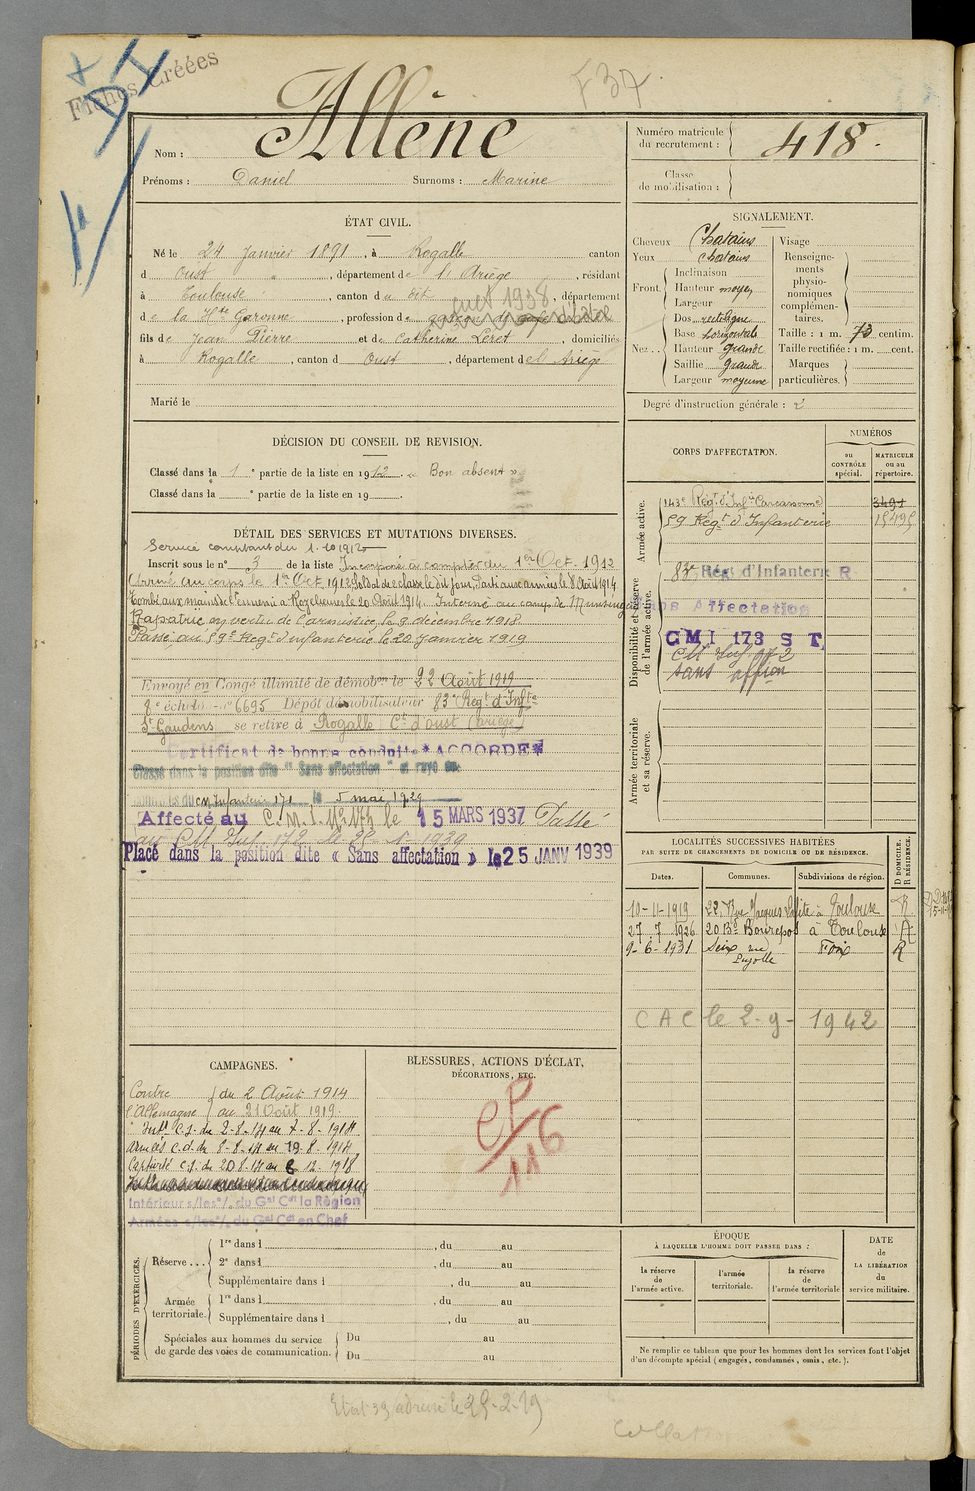 Fiches Créées
D I
F 37
Nom : Allène
Prénoms : Daniel Surnoms : Marine
Numéro matricule du recrutement : 418.
Classe de mobilisation :
ÉTAT CIVIL.
Né le 24 Janvier 1891, à Rogalle canton
d Oust, département de l'Ariège, résidant
à Toulouse, canton du dit, département
de la Hte Garonne, profession de
cult 1938
fils de Jean Pierre et de Catherine Leret, domiciliés
à Rogalle, canton d Oust, département de l'Ariège
Marié le
SIGNALEMENT.
Cheveux Chatains
Yeux chatains
Front. Inclinaison
Hauteur moyen
Largeur
Nez.. Dos rectiligne
Base horizontale
Hauteur Grande
Saillie Grande
Largeur moyenne
Visage
Renseignements physionomiques complémentaires.
Taille : 1 m. 73 centim.
Taille rectifiée : 1 m. cent.
Marques particulières.
Degré d'instruction générale : 2
DÉCISION DU CONSEIL DE REVISION.
Classé dans la 1e partie de la liste en 1912. « Bon absent »
Classé dans la e partie de la liste en 19 .
DÉTAIL DES SERVICES ET MUTATIONS DIVERSES.
Service comptant du 1.10 1912
Inscrit sous le n° 3 de la liste Incorporé à compter du 1er Oct. 1912
Arrivé au corps le 1er Oct. 1912 Soldat de 2e classe le dit jour, Parti aux armées le 8 Août 1914
Tombé aux mains de l'ennemi à Rozelieures le 20 Août 1914 Interné au camp de Munsingen
Rapatrié en vertu de l'armistice, le 9 décembre 1918
Passé au 59e Régt d'infanterie le 20 Janvier 1919
Envoyé en Congé illimité de démobon le 22 Août 1919
8e échelon n° 6695 Dépôt démobilisateur 83e Régt d'Infie
St Gaudens se retire à Rogalle Cn d'oust (Ariège)
Certificat de bonne conduite "ACCORDÉ"
Classé dans la position dite "Sans affectation" et rayé des
contrôles du CM Infanterie 171 le 5 mai 1929
Affecté au C.M.I. N° 173 le 15 MARS 1937 Passé
au CM Inf. 172 le
Placé dans la position dite « Sans affectation » le 25 JANV 1939
CORPS D'AFFECTATION.
NUMÉROS
au CONTRÔLE spécial.
MATRICULE ou au répertoire.
Armée active.
143e Régt d'Infie Carcassonne 3491
59 Régt d'Infanterie 15195
Disponibilité et réserve de l'armée active.
83e Rég. d'Infanterie R
Sans Affectation
CMI 173 S T
CM Inf 172
sans affion
Armée territoriale et sa réserve.
LOCALITÉS SUCCESSIVES HABITÉES
PAR SUITE DE CHANGEMENTS DE DOMICILE OU DE RÉSIDENCE.
D DOMICILE. R RÉSIDENCE.
Dates. Communes. Subdivisions de région.
10-11-1919 22, Rue Jacques Lafitte à Toulouse R
27 7 1926 20 Bd Bonrepos à Toulouse R
9-6-1931 Seix rue Pujolle Foix R
C A C le 2-9-1942
CAMPAGNES.
Contre l'Allemagne du 2 Août 1914
au 21 Août 1919.
Intr C.S. du 2-8-14 au 7-8-1914
Armées C.d. du 8-8-14 au 19-8-1914
Captivité C.S. du 20.8.14 au 8 12-1918
Intérieur s/les/. du Gal Cdt la Région
Armées s/les/. du Gal Cdt en Chef
BLESSURES, ACTIONS D'ÉCLAT,
DÉCORATIONS, ETC.
CP
116
PÉRIODES D'EXERCICES.
Réserve... 1re dans l , du au
2e dans l , du au
Supplémentaire dans l , du au
Armée territoriale. 1re dans l , du au
Supplémentaire dans l , du au
Spéciales aux hommes du service de garde des voies de communication. Du au
Du au
ÉPOQUE
À LAQUELLE L'HOMME DOIT PASSER DANS :
la réserve de l'armée active.
l'armée territoriale.
la réserve de l'armée territoriale
DATE de LA LIBÉRATION du service militaire.
Ne remplir ce tableau que pour les hommes dont les services font l'objet
d'un décompte spécial (engagés, condamnés, omis, etc.).